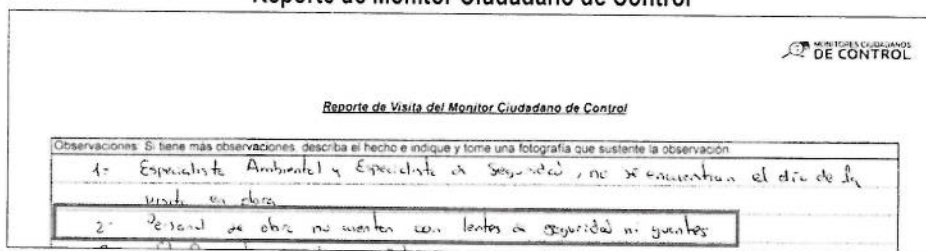 Reporte de Monitor Ciudadano de Control
MONITORES CIUDADANOS
DE CONTROL
Reporte de Visita del Monitor Ciudadano de Control
Observaciones: Si tiene más observaciones, describa el hecho e indique y tome una fotografía que sustente la observación
1- Especialista Ambiental y Especialista de Seguridad, no se encuentran el día de la
visita en obra
2- Personal de obra no cuentan con lentes de seguridad ni guantes